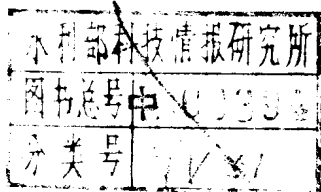 水利部科技情报研究所
图书总号中
分类号